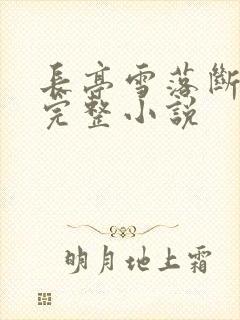 長亭雪落斷
完整小說
明月地上霜